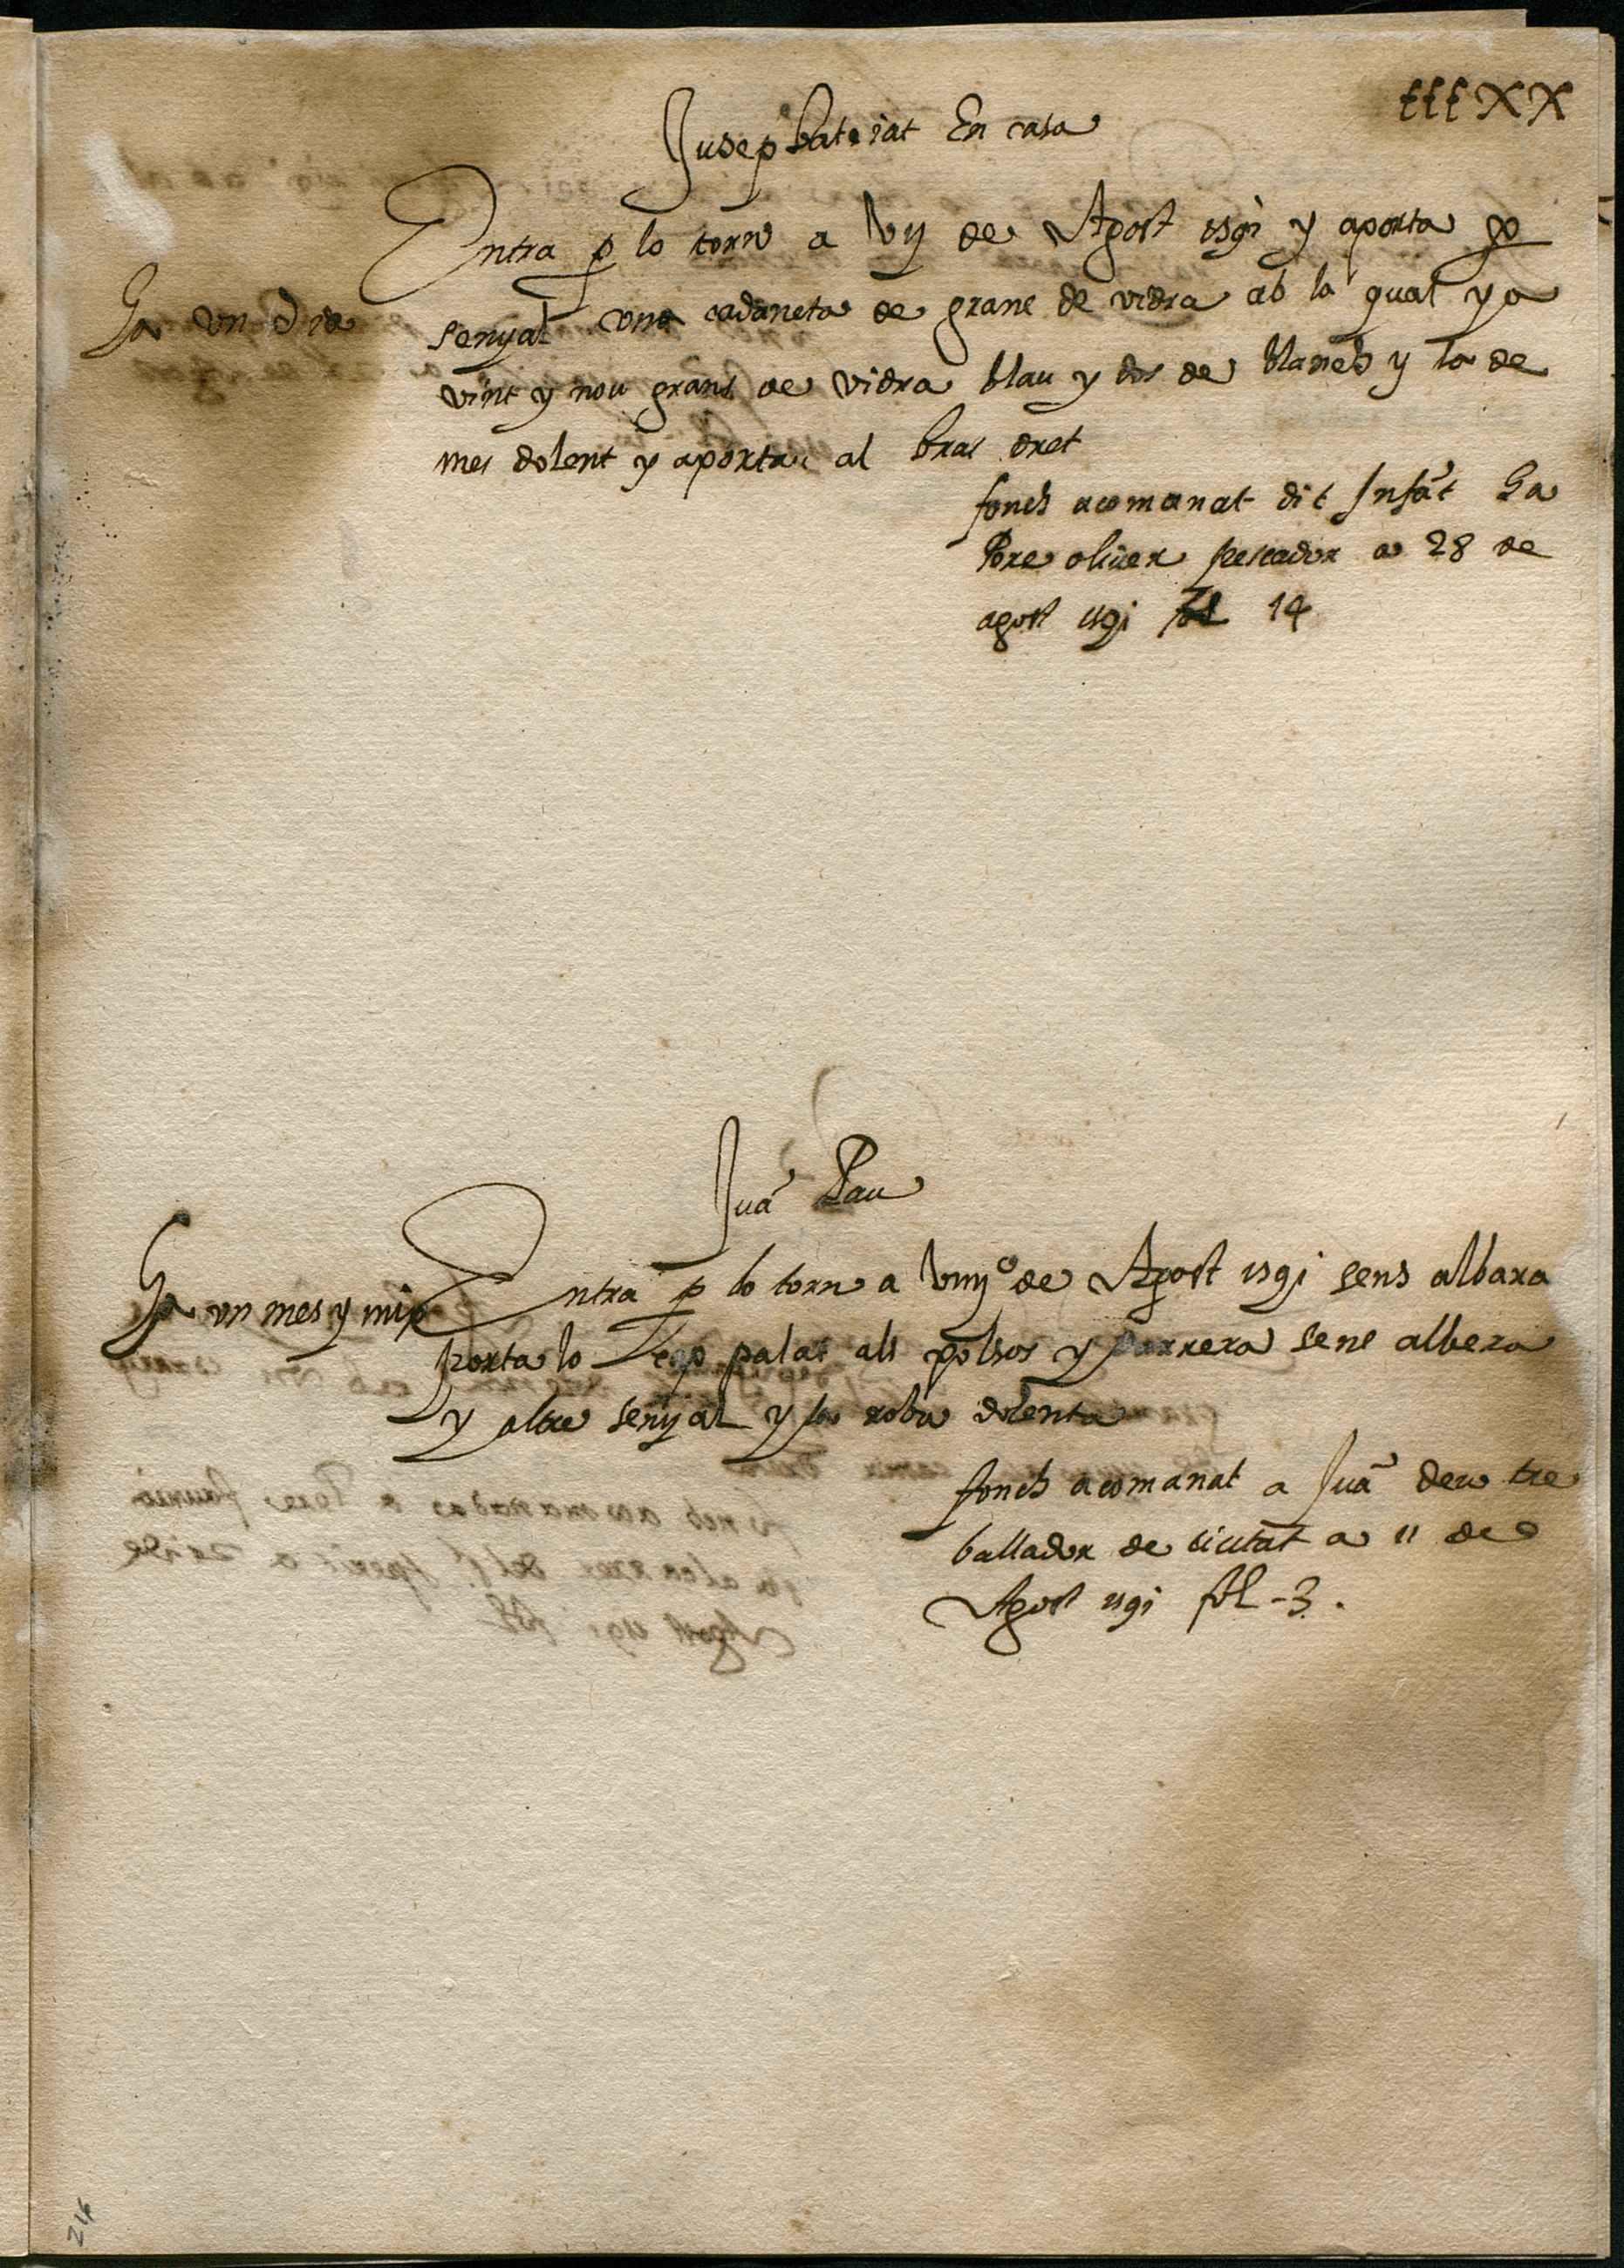 tttXX
Jusep bateiat En casa
Entra p lo torn a vij de Agost 1591 y aporta p
Ja un dia
senyal una cadaneta de grans de vidra ab la qual y a
vint y nou grans de vidra blau y dos de blanch y la de
mes dolent y aporta al bras dret
fonch acomanat dit Infāt Ja
Pere oliver pescador a 28 de
agost 1591 fol 14
Juā Pau
Entra p lo torn a viiijº de Agost 1591 sens albara
Ja un mes y mig
porta lo cap palat als polsos y darrera sens albera
y altre senyal y la roba dolenta
fonch acomanat a Juā deu tre
ballador de ciutat a 11 de
Agost 1591 fol - 3 .
24